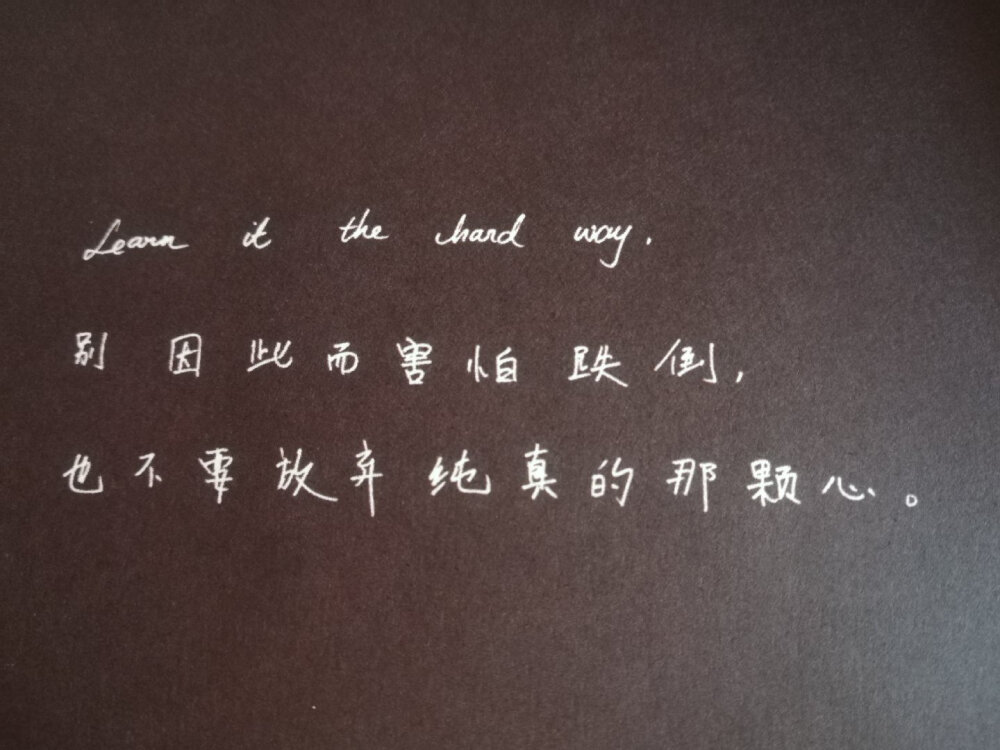 Learn it the hard way.
别因此而害怕跌倒,
也不要放弃纯真的那颗心。